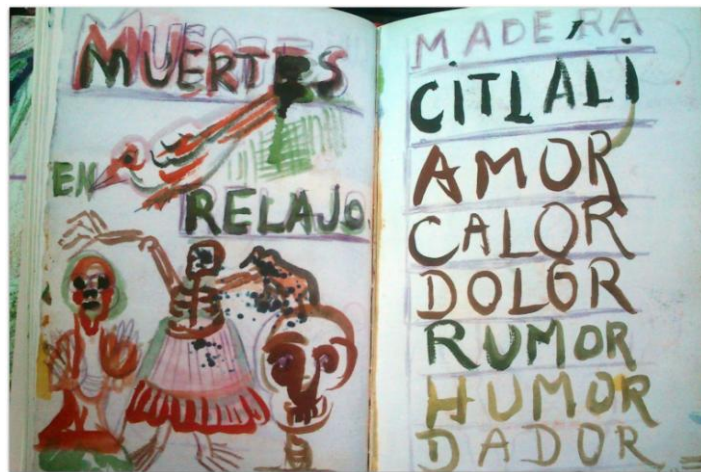 MUERTES
EN
RELAJO.
MADERA
CITLALI
AMOR
CALOR
DOLOR
RUMOR
HUMOR
DADOR